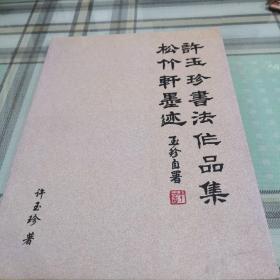 許玉珍書法作品集
松竹軒墨迹
玉珍自署
许玉珍 著